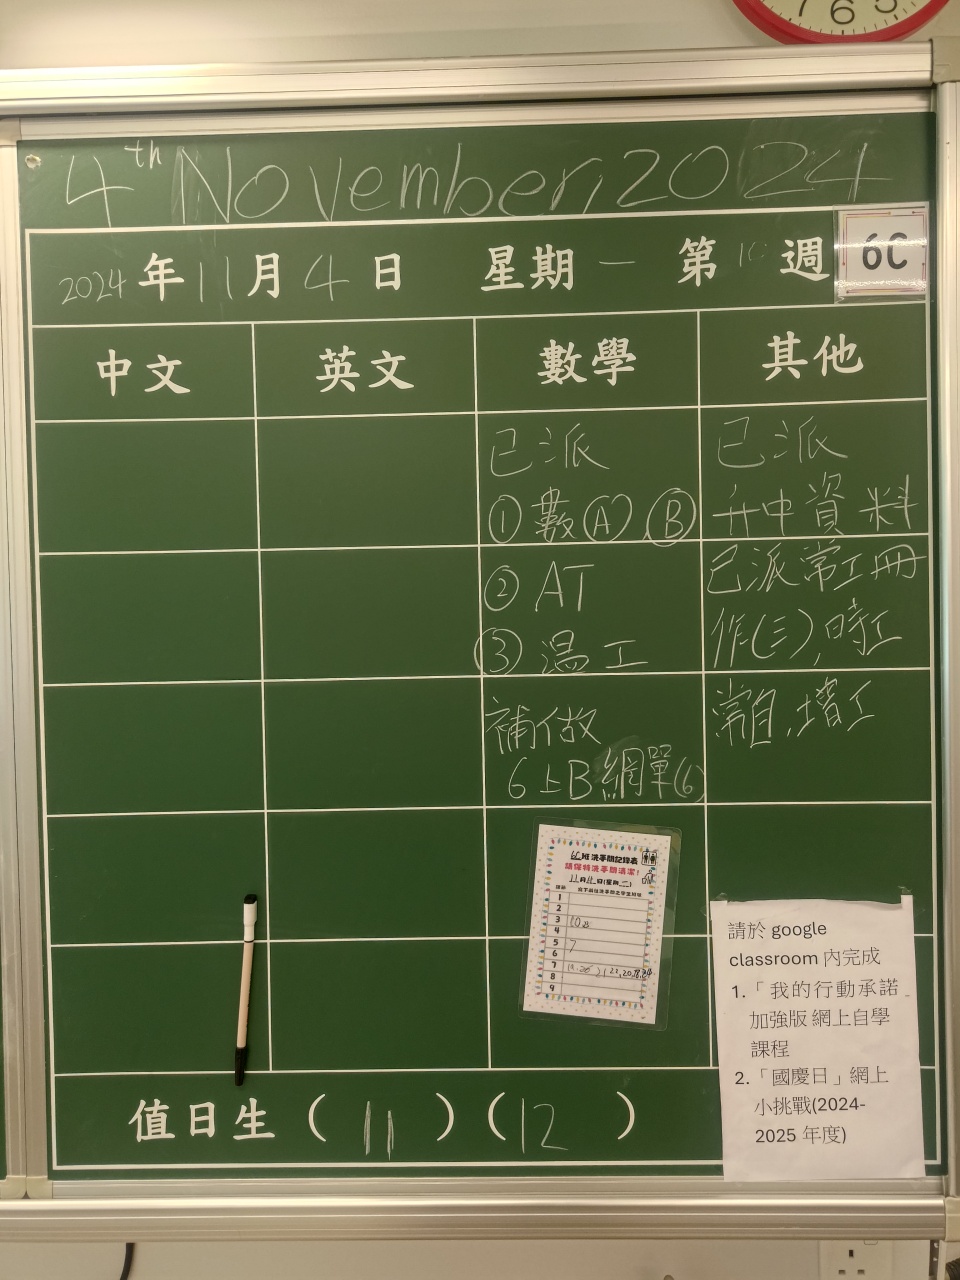 7 6 5
4th November, 2024
2024年11月4日 星期一 第10週
6C
中文 英文 數學 其他
已派
①數Ⓐ,Ⓑ
②AT
③温工
補做
6上B網單(6)
已派
升中資料
已派常工冊
作(三),時工
常自,增工
6C班洗手間記錄表
請保持洗手間清潔!
11月 日(星期一)
課節 寫下前往洗手間之學生班號
1
2
3 10
4
5 7
6
7 21,22,20,18,24
8
9
請於 google
classroom 內完成
1.「我的行動承諾
加強版 網上自學
課程
2.「國慶日」網上
小挑戰(2024-
2025 年度)
值日生(11)(12)